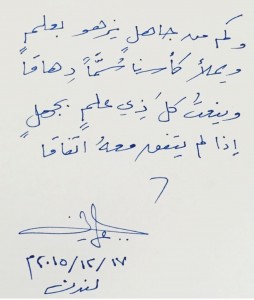 وكم من جاهلٍ يزهو بعلمٍ
ويملأ كأسنا سُمًّا دِهاقَا
وينعتُ كلَّ ذِي علمٍ بجهلٍ
إذا لم يتفق معهُ اتّفاقَا
٢٠١٥/١٢/١٧م
لندن